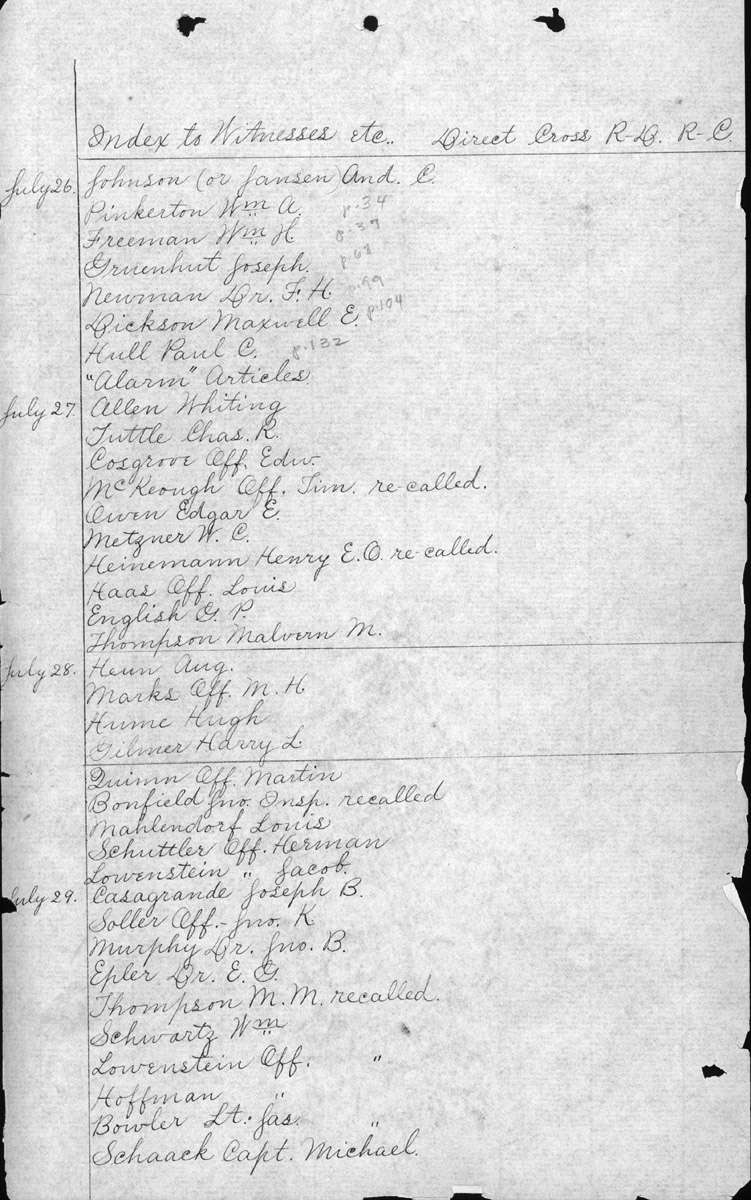 Index to Witnesses etc.. Direct Cross R-D. R-C.
July 26. Johnson (or Jansen) And. C.
Pinkerton Wm A. p.34
Freeman Wm H. p.37
Gruenhut Joseph. p.68
Newman Dr. F. H. p.99
Dickson Maxwell E. p.104
Hull Paul C. p.132
"Alarm" Articles.
July 27. Allen Whiting
Tuttle Chas. R.
Cosgrove Off. Edw.
McKeough Off. Tim. re-called.
Owen Edgar E.
Metzner W. C.
Heinemann Henry E.O. re-called.
Haas Off. Louis
English G. P.
Thompson Malvern M.
July 28. Heun Aug.
Marks Off. M. H.
Hume Hugh
Gilmer Harry L.
Quinn Off. Martin
Bonfield Jno. Insp. recalled
Mahlendorf Louis
Schuttler Off. Herman
Lowenstein " Jacob.
July 29. Casagrande Joseph B.
Soller Off. Jno. K
Murphy Dr. Jno. B.
Epler Dr. E. G.
Thompson M. M. recalled.
Schwartz Wm
Lowenstein Off. "
Hoffman "
Bowler Lt. Jas. "
Schaack Capt. Michael.